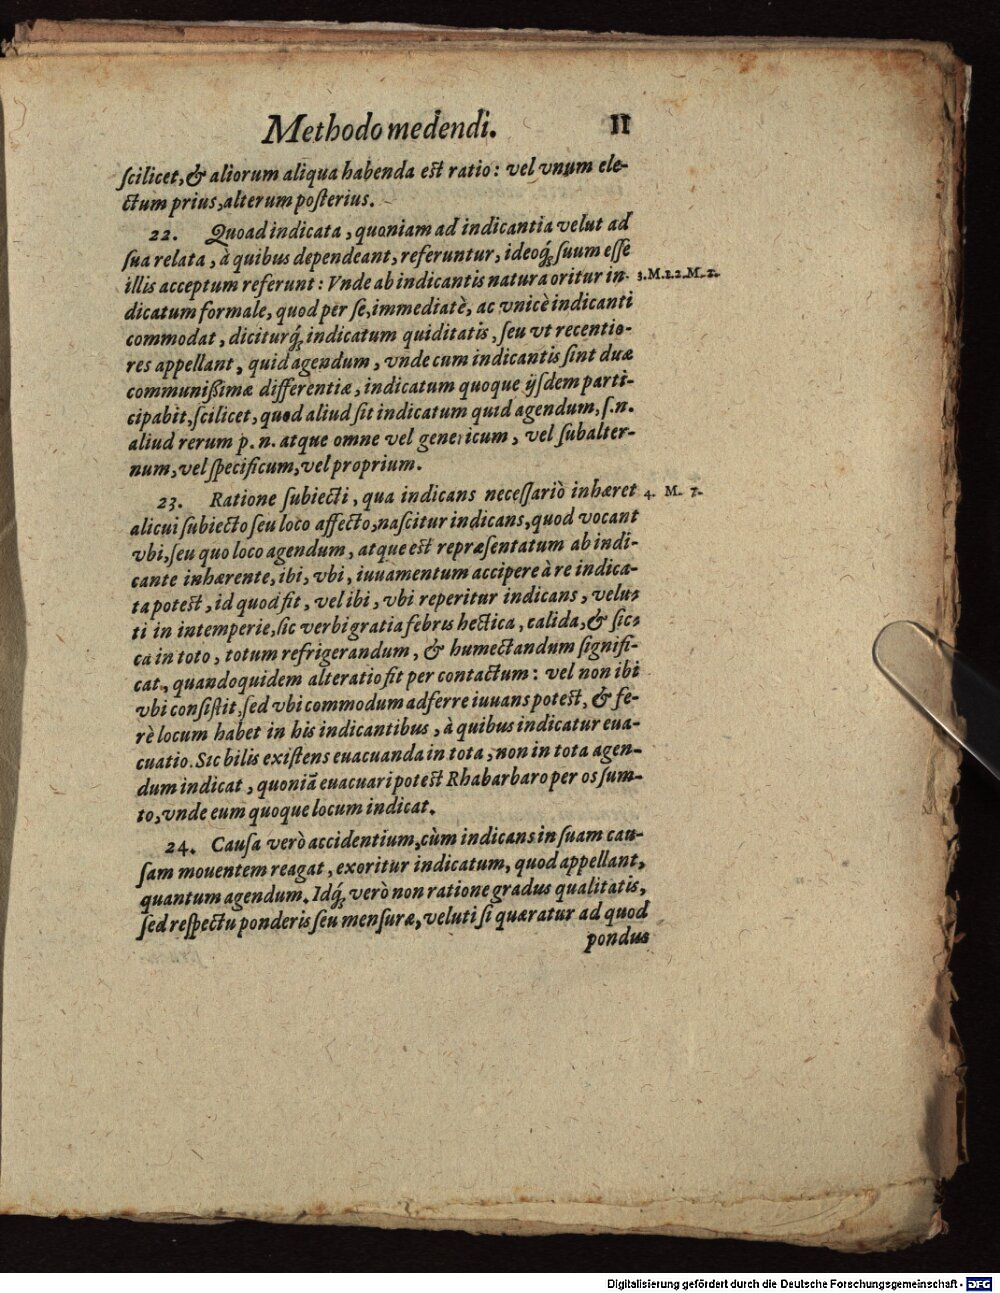 Methodo medendi. 11
ſcilicet, & aliorum aliqua habenda est ratio: vel vnum ele-
ctum prius, alterum poſterius.
22. Quoad indicata, quoniam ad indicantia velut ad
ſua relata, à quibus dependeant, referuntur, ideoq́; ſuum eſſe
illis acceptum referunt: Vnde ab indicantis natura oritur in- 3.M.1.2.M.7.
dicatum formale, quod per ſe, immediatè, ac vnicè indicanti
commodat, diciturq́; indicatum quiditatis, ſeu vt recentio-
res appellant, quid agendum, vnde cum indicantis ſint duæ
communißimæ differentiæ, indicatum quoque ijſdem parti-
cipabit, ſcilicet, quod aliud ſit indicatum quid agendum, ſ.n.
aliud rerum p. n. atque omne vel genericum, vel ſubalter-
num, vel ſpecificum, vel proprium.
23. Ratione ſubiecti, qua indicans neceſſariò inhæret 4. M. 7.
alicui ſubiecto ſeu loco affecto, naſcitur indicans, quod vocant
vbi, ſeu quo loco agendum, atque est repræſentatum ab indi-
cante inhærente, ibi, vbi, iuuamentum accipere à re indica-
ta potest, id quod fit, vel ibi, vbi reperitur indicans, velu-
ti in intemperie, ſic verbi gratia febris hectica, calida, & ſic-
ca in toto, totum refrigerandum, & humectandum ſignifi-
cat, quandoquidem alteratio fit per contactum: vel non ibi
vbi conſiſtit, ſed vbi commodum adferre iuuans potest, & fe-
rè locum habet in his indicantibus, à quibus indicatur eua-
cuatio. Sic bilis exiſtens euacuanda in tota, non in tota agen-
dum indicat, quoniã euacuari potest Rhabarbaro per os ſum-
to, vnde eum quoque locum indicat.
24. Cauſa verò accidentium, cùm indicans in ſuam cau-
ſam mouentem reagat, exoritur indicatum, quod appellant,
quantum agendum. Idq́; verò non ratione gradus qualitatis,
ſed reſpectu ponderis ſeu menſuræ, veluti ſi quæratur ad quod
pondus
Digitalisierung gefördert durch die Deutsche Forschungsgemeinschaft - DFG